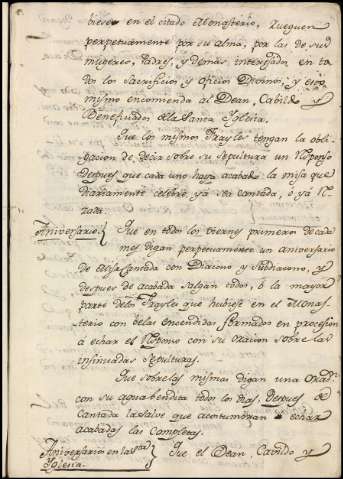 biese en el citado Monasterio, rueguen
perpetuamente por su alma, por las de sus
mugeres, Padres, y demas interesados en to
dos los Sacrificios, y oficios Divinos; y esto
mismo encomienda al Dean, Cabildo y
Beneficiados de la Santa Iglesia.
Que los mismos Frayles tengan la obli
gacion de decir sobre su sepultura un Responso
despues que cada uno haya acabado la misa que
diariamente celebre, ya sea cantada, o ya re
zada.
Aniversario Que en todos los viernes primero de cada
mes digan perpetuamente un aniversario
de Misa Cantada con Diacono y Subdiacono, y
despues de acabada salgan todos, ó la mayor
parte de los Frayles que hubiese en el Monas
terio con belas encendidas formados en procesion
á echar el Responso con su oracion sobre las
insinuadas Sepulturas.
Que sobre las mismas digan una oracion
con su agua bendita todos los dias, despues de
Cantada la salve que acostumbran á echar
acabadas las Completas.
Aniversario en la sta Que el Dean, Cavildo y
Iglesia.